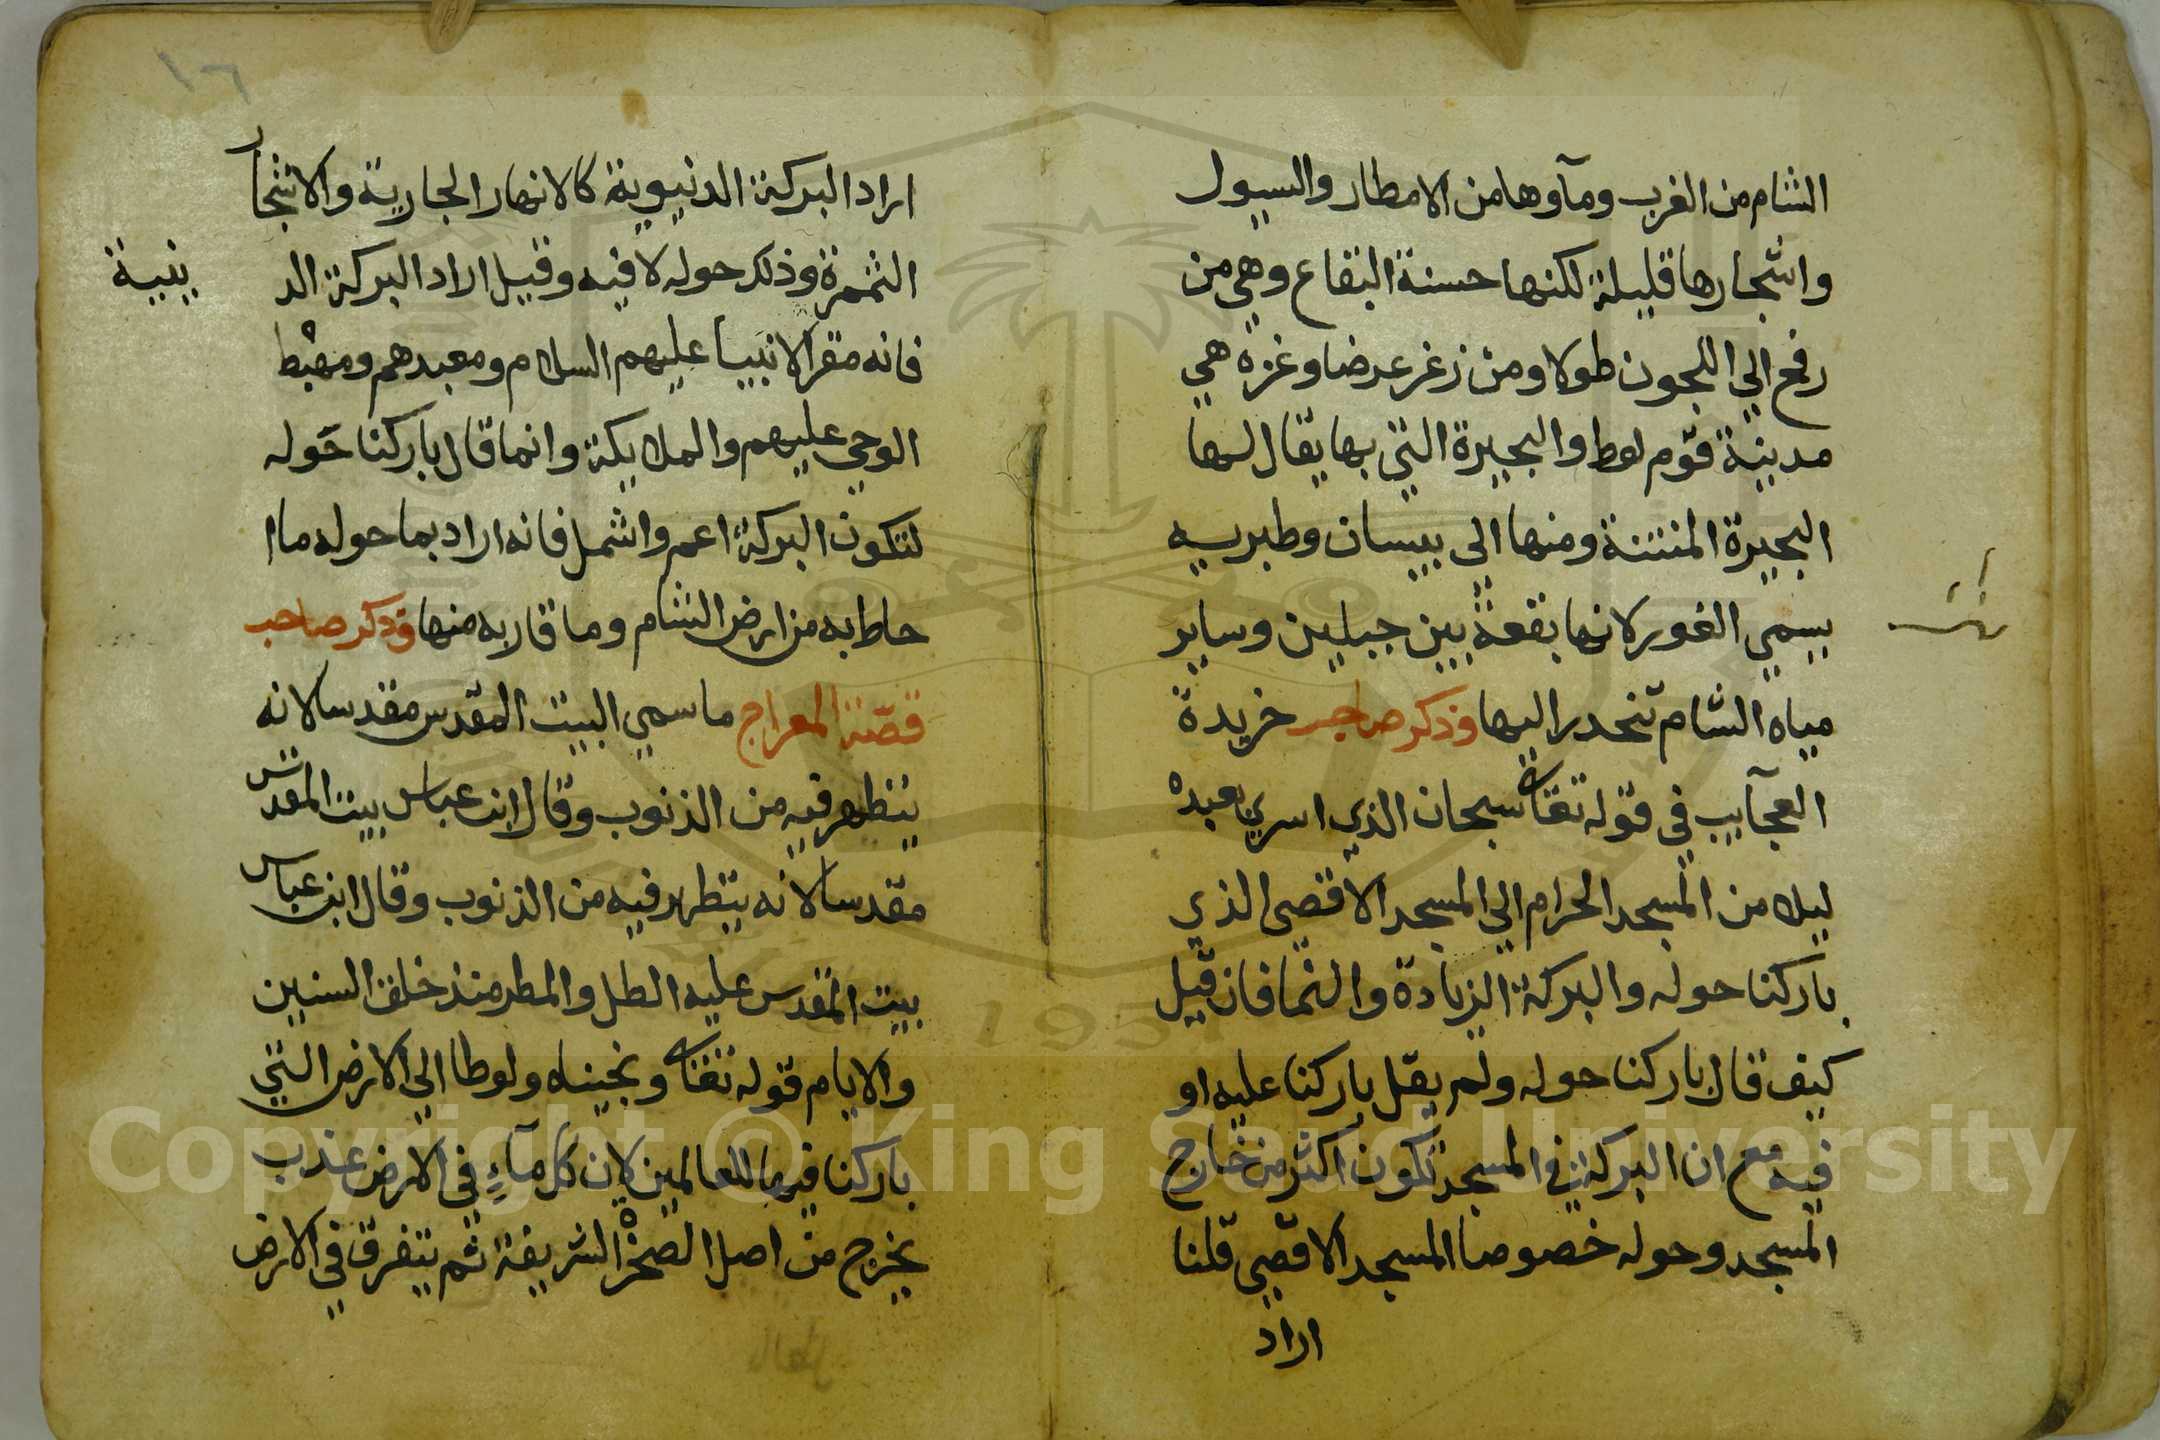 الشام من الغرب ومآوها من الامطار والسيول
واشجارها قليلة لكنها حسنة البقاع وهي من
رفح الي اللجون طولا ومن زغر عرضا وغزه هي
مدينة قوم لوط والبحيرة التي بها يقال لها
البحيرة المنتنة ومنها الي بيسان وطبريه
يسمي الغور لانها بقعة بين جبلين وساير
مياه الشام تنحدر اليها وذكر صاحب خريدة
العجآيب في قوله تعالى سبحان الذي اسري بعبده
ليلا من المسجد الحرام الي المسجد الاقصي الذي
باركنا حوله والبركة الزيادة والنما فان قيل
كيف قال باركنا حوله ولم يقل باركنا عليه او
فيه مع ان البركة في المسجد تكون اكثر من خارج
المسجد وحوله خصوصا المسجد الاقصي قلنا
اراد
١٦
اراد البركة الدنيوية كالانهار الجارية والاشجار
الثمرة وذلك حوله لا فيه وقيل اراد البركة الد ينية
فانه مقر الانبيا عليهم السلام ومعبدهم ومهبط
الوحي عليهم والملايكة وانما قال باركنا حوله
لتكون البركة اعم واشمل فانه اراد بما حوله ما ا
حاط به من ارض الشام وما قاربه منها وذكر صاحب
قصة المعراج ما سمي البيت المقدس مقدسا لانه
يتطهر فيه من الذنوب وقال ابن عباس بيت المقدس
مقدسا لانه يتطهر فيه من الذنوب وقال ابن عباس
بيت المقدس عليه الطل والمطر منذ خلق السنين
والايام قوله تعالى ونجيناه ولوطا الي الارض التي
باركنا فيها للعالمين لان كل مآءٍ في الارض عذب
يخرج من اصل الصخرة الشريفة ثم يتفرق في الارض
Copyright © King Saud University
1957